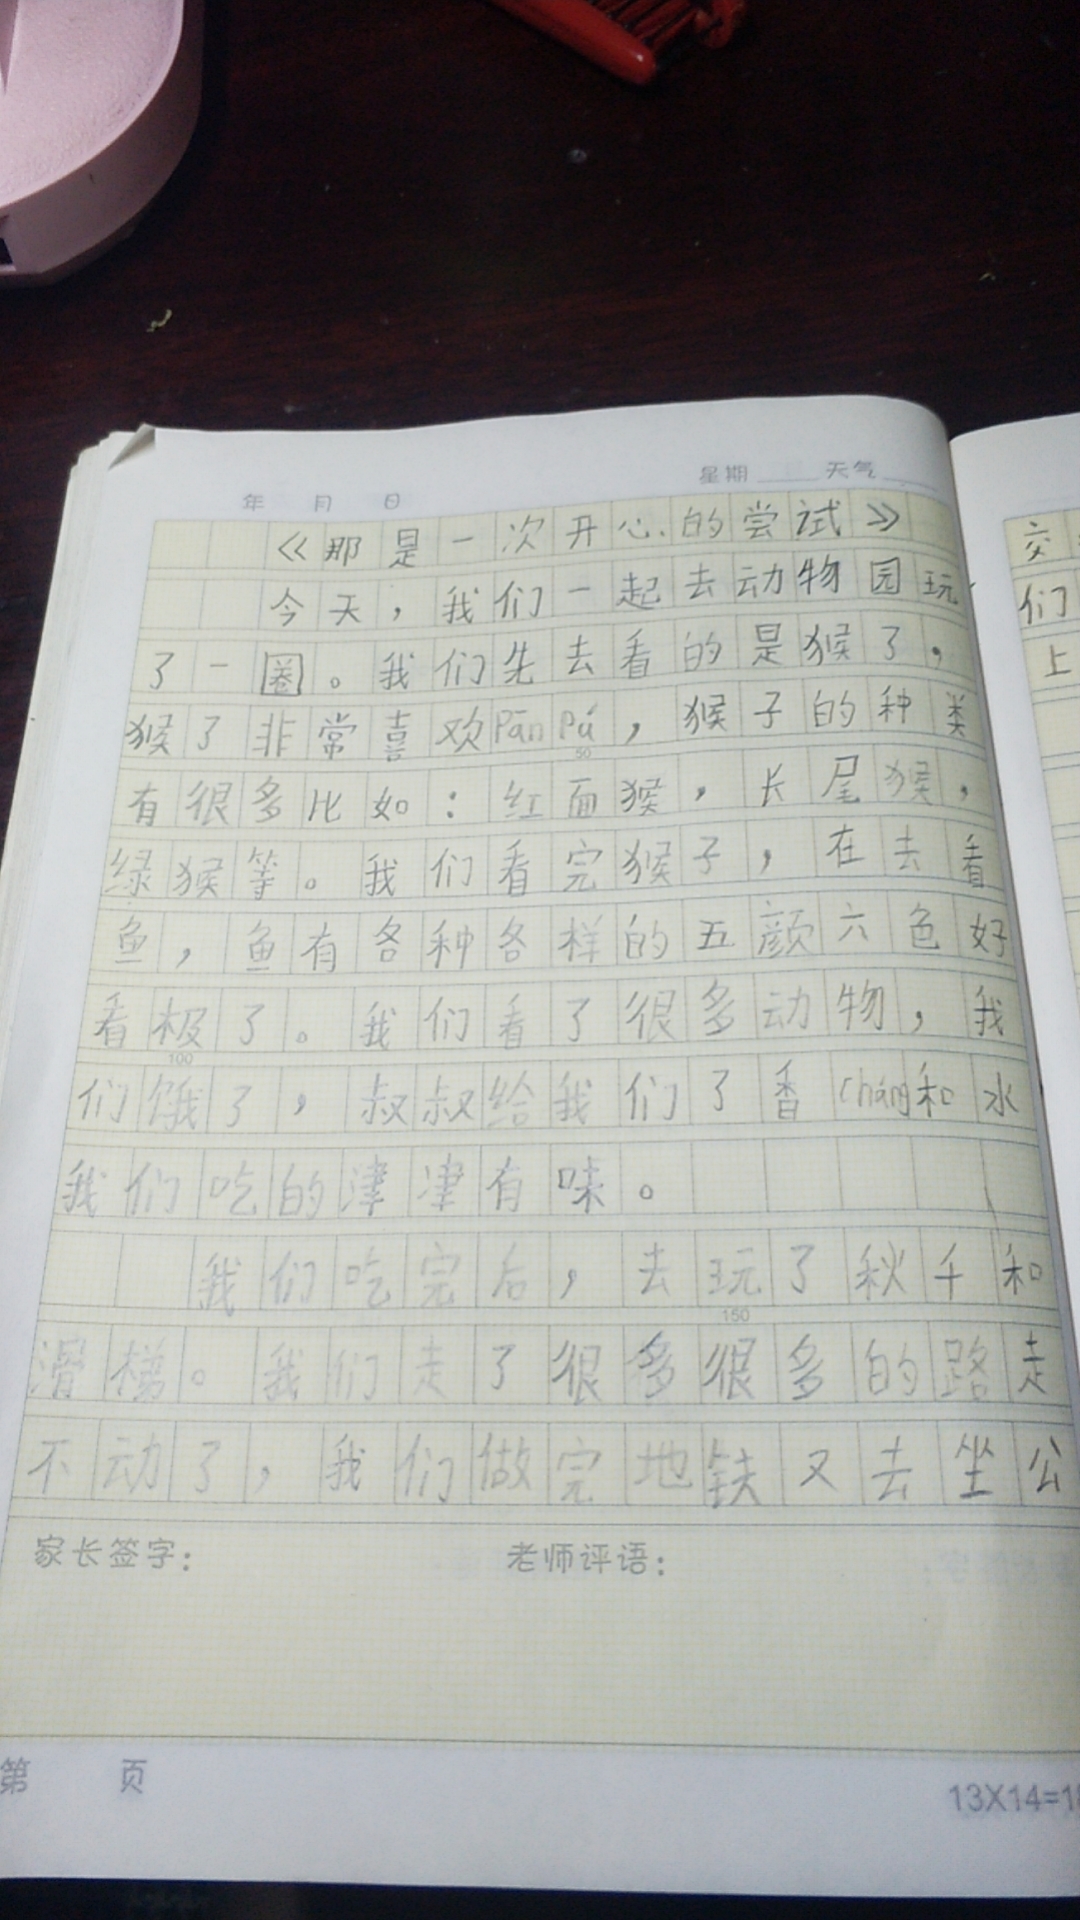 年 月 日 星期 天气
《那是一次开心的尝试》
今天，我们一起去动物园玩
了一圈。我们先去看的是猴了，
猴了非常喜欢Pān Pá，猴子的种类
有很多比如：红面猴，长尾猴，
绿猴等。我们看完猴子，在去看
鱼，鱼有各种各样的五颜六色好
看极了。我们看了很多动物，我
们饿了，叔叔给我们了香cháng和水
我们吃的津津有味。
我们吃完后，去玩了秋千和
滑梯。我们走了很多很多的路走
不动了，我们做完地铁又去坐公
家长签字： 老师评语：
第 页
13X14=1
交
们
上